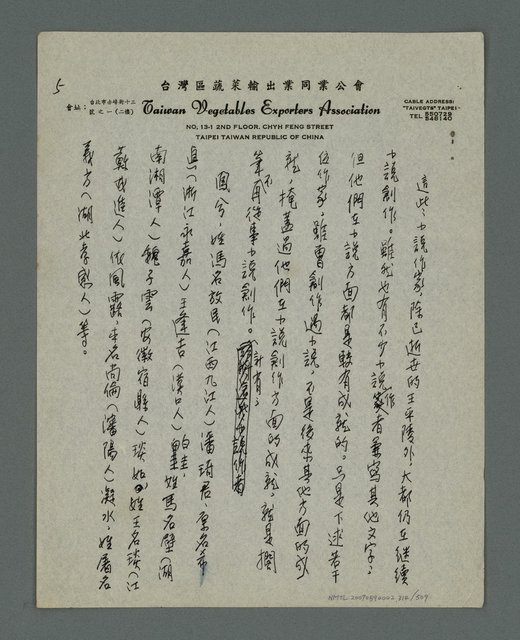 5
台灣區蔬菜輸出業同業公會
會址：台北市赤峰街十三號之一(二樓)
Taiwan Vegetables Exporters Association
CABLE ADDRESS:
"TAIVEGTS" TAIPEI
TEL 550729
548140
NO, 13-1 2ND FLOOR. CHYH FENG STREET
TAIPEI TAIWAN REPUBLIC OF CHINA
這些小說作家，除已逝世的王平陵外，大都仍在繼續
小說創作。雖然也有不少小說作者兼寫其他文字，
但他們在小說方面都是較有成就的。只是下述若干
位作家，雖曾創作過小說，不是後來其他方面的成
就，掩蓋過他們在小說創作方面的成就，就是擱
筆不再從事小說創作。計有：
鳳兮，姓馮名放民（江西九江人）潘琦君，原名希
真（浙江永嘉人）王逢吉（漢口人）墨人，姓馬名璧（湖
南湘潭人）魏子雲（安徽宿縣人）琰如，姓王名琰（江
蘇武進人）依風露，本名尚倫（瀋陽人）凝水，姓屠名
義方（湖北孝感人）等。
NMTL 20090590002 212/509